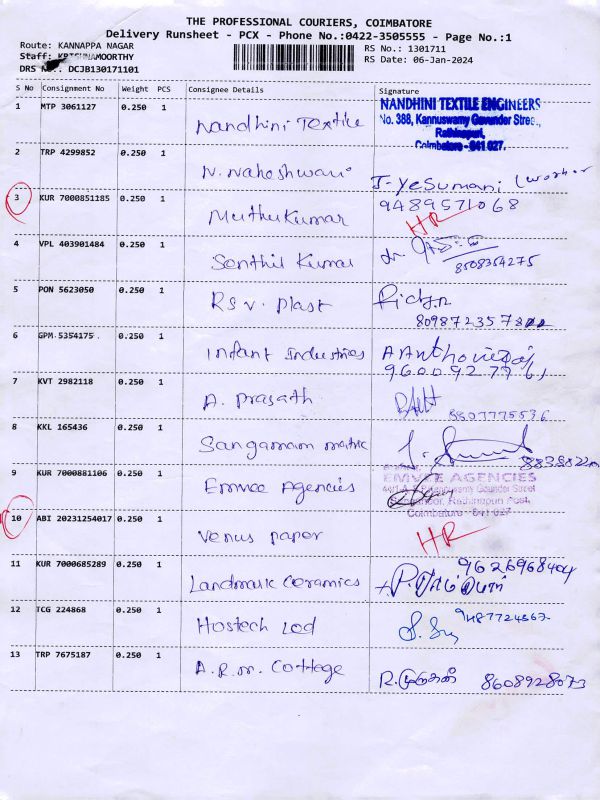 THE PROFESSIONAL COURIERS, COIMBATORE
Delivery Runsheet - PCX - Phone No.:0422-3505555 - Page No.:1
Route: KANNAPPA NAGAR RS No.: 1301711
Staff: KRISHNAMOORTHY RS Date: 06-Jan-2024
DRS No.: DCJB130171101
S No Consignment No Weight PCS Consignee Details Signature
1 MTP 3061127 0.250 1 Nandhini Textile NANDHINI TEXTILE ENGINEERS
No. 388, Kannuswamy Gounder Street,
Rathinapuri,
Coimbatore - 641 027.
2 TRP 4299852 0.250 1 N. Maheshwari J-Yesumani (worker
3 KUR 7000851185 0.250 1 Muthukumar 9489571068
HR
4 VPL 403901484 0.250 1 Senthil Kumar
8508354275
5 PON 5623050 0.250 1 RSV. Plast
6 GPM 5354175 0.250 1 Infant Industries A Anthoniraj
9600927761
7 KVT 2982118 0.250 1 A. Prasath
8807775536
8 KKL 165436 0.250 1 Sangamam matric
9 KUR 7000881106 0.250 1 Emvee Agencies EMVEE AGENCIES
Rathinapuri Post,
Coimbatore - 641 027
10 ABI 20231254017 0.250 1 Venus paper HR
11 KUR 7000685289 0.250 1 Landmark Ceramics 9626968404
12 TCG 224868 0.250 1 Hostech Led
13 TRP 7675187 0.250 1 A.R.M. Cottage R.முருகன் 8608928073